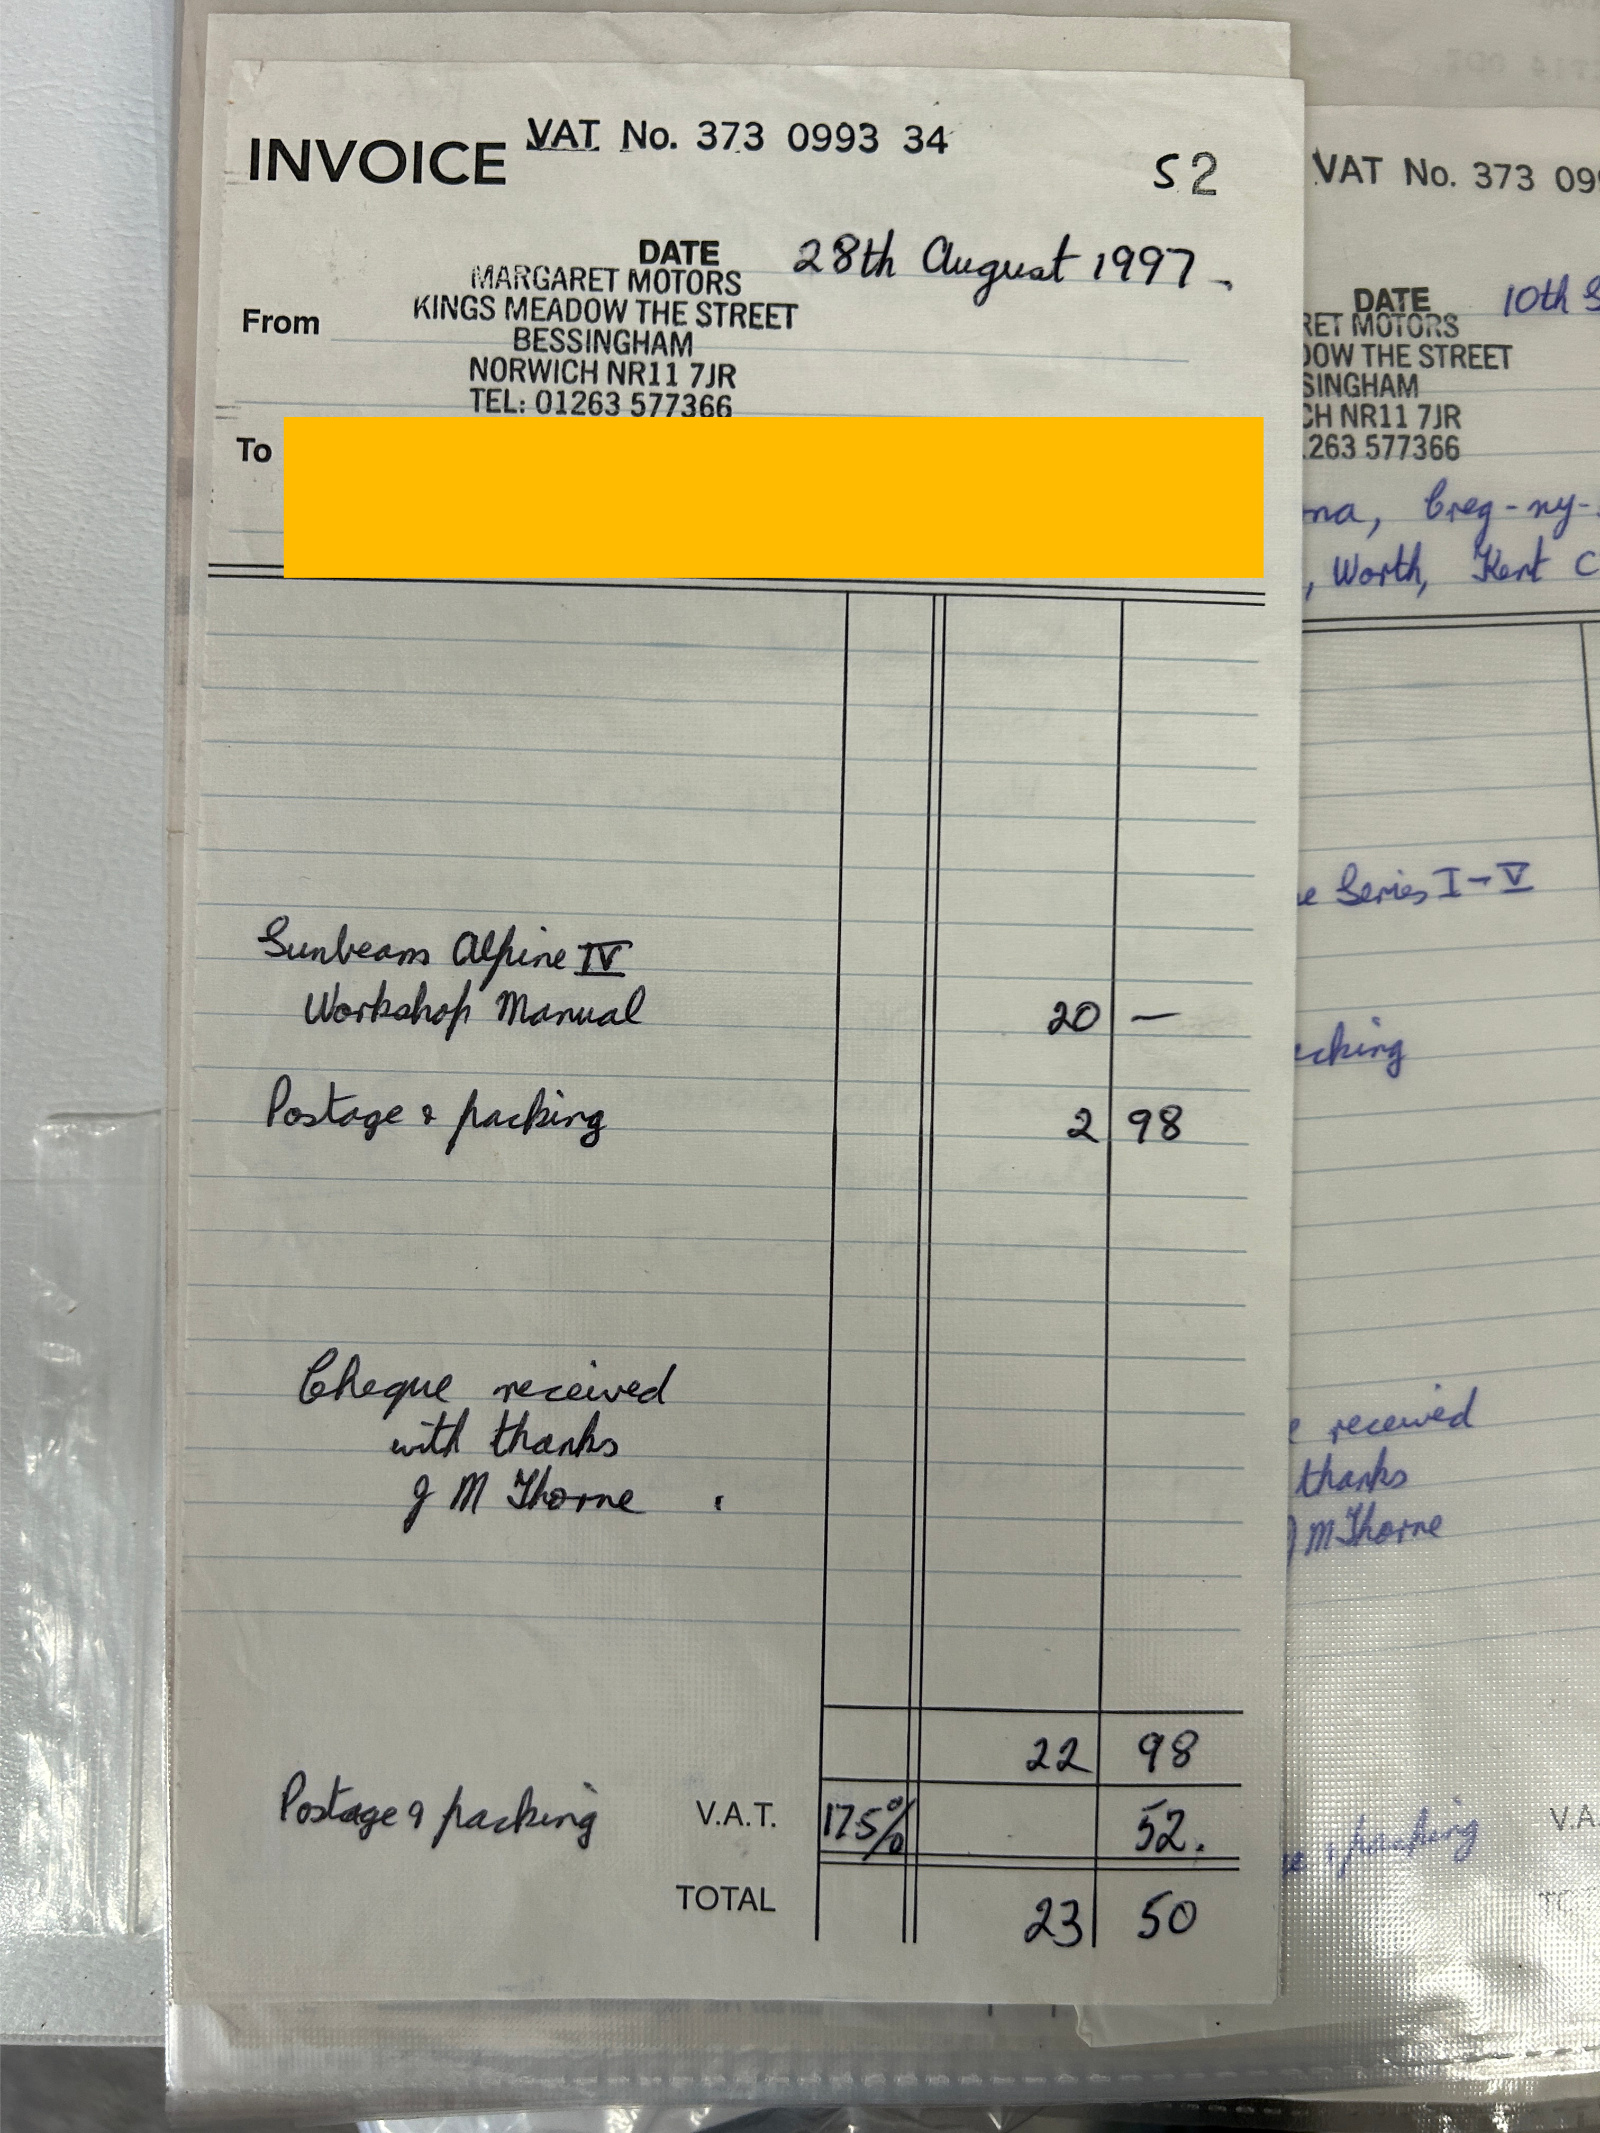 INVOICE VAT No. 373 0993 34
S2
DATE 28th August 1997
MARGARET MOTORS
From KINGS MEADOW THE STREET
BESSINGHAM
NORWICH NR11 7JR
TEL: 01263 577366
To
Sunbeam Alpine IV
Workshop Manual 20 —
Postage & packing 2 98
Cheque received
with thanks
J M Thorne
22 98
Postage & packing V.A.T. 17.5% 52.
TOTAL 23 50
VAT No. 373 09
DATE 10th S
RET MOTORS
OW THE STREET
SINGHAM
CH NR11 7JR
263 577366
na, Creg-ny-
, Worth, Kent C
e Series I-V
cking
e received
thanks
J M Thorne
packing V.A.